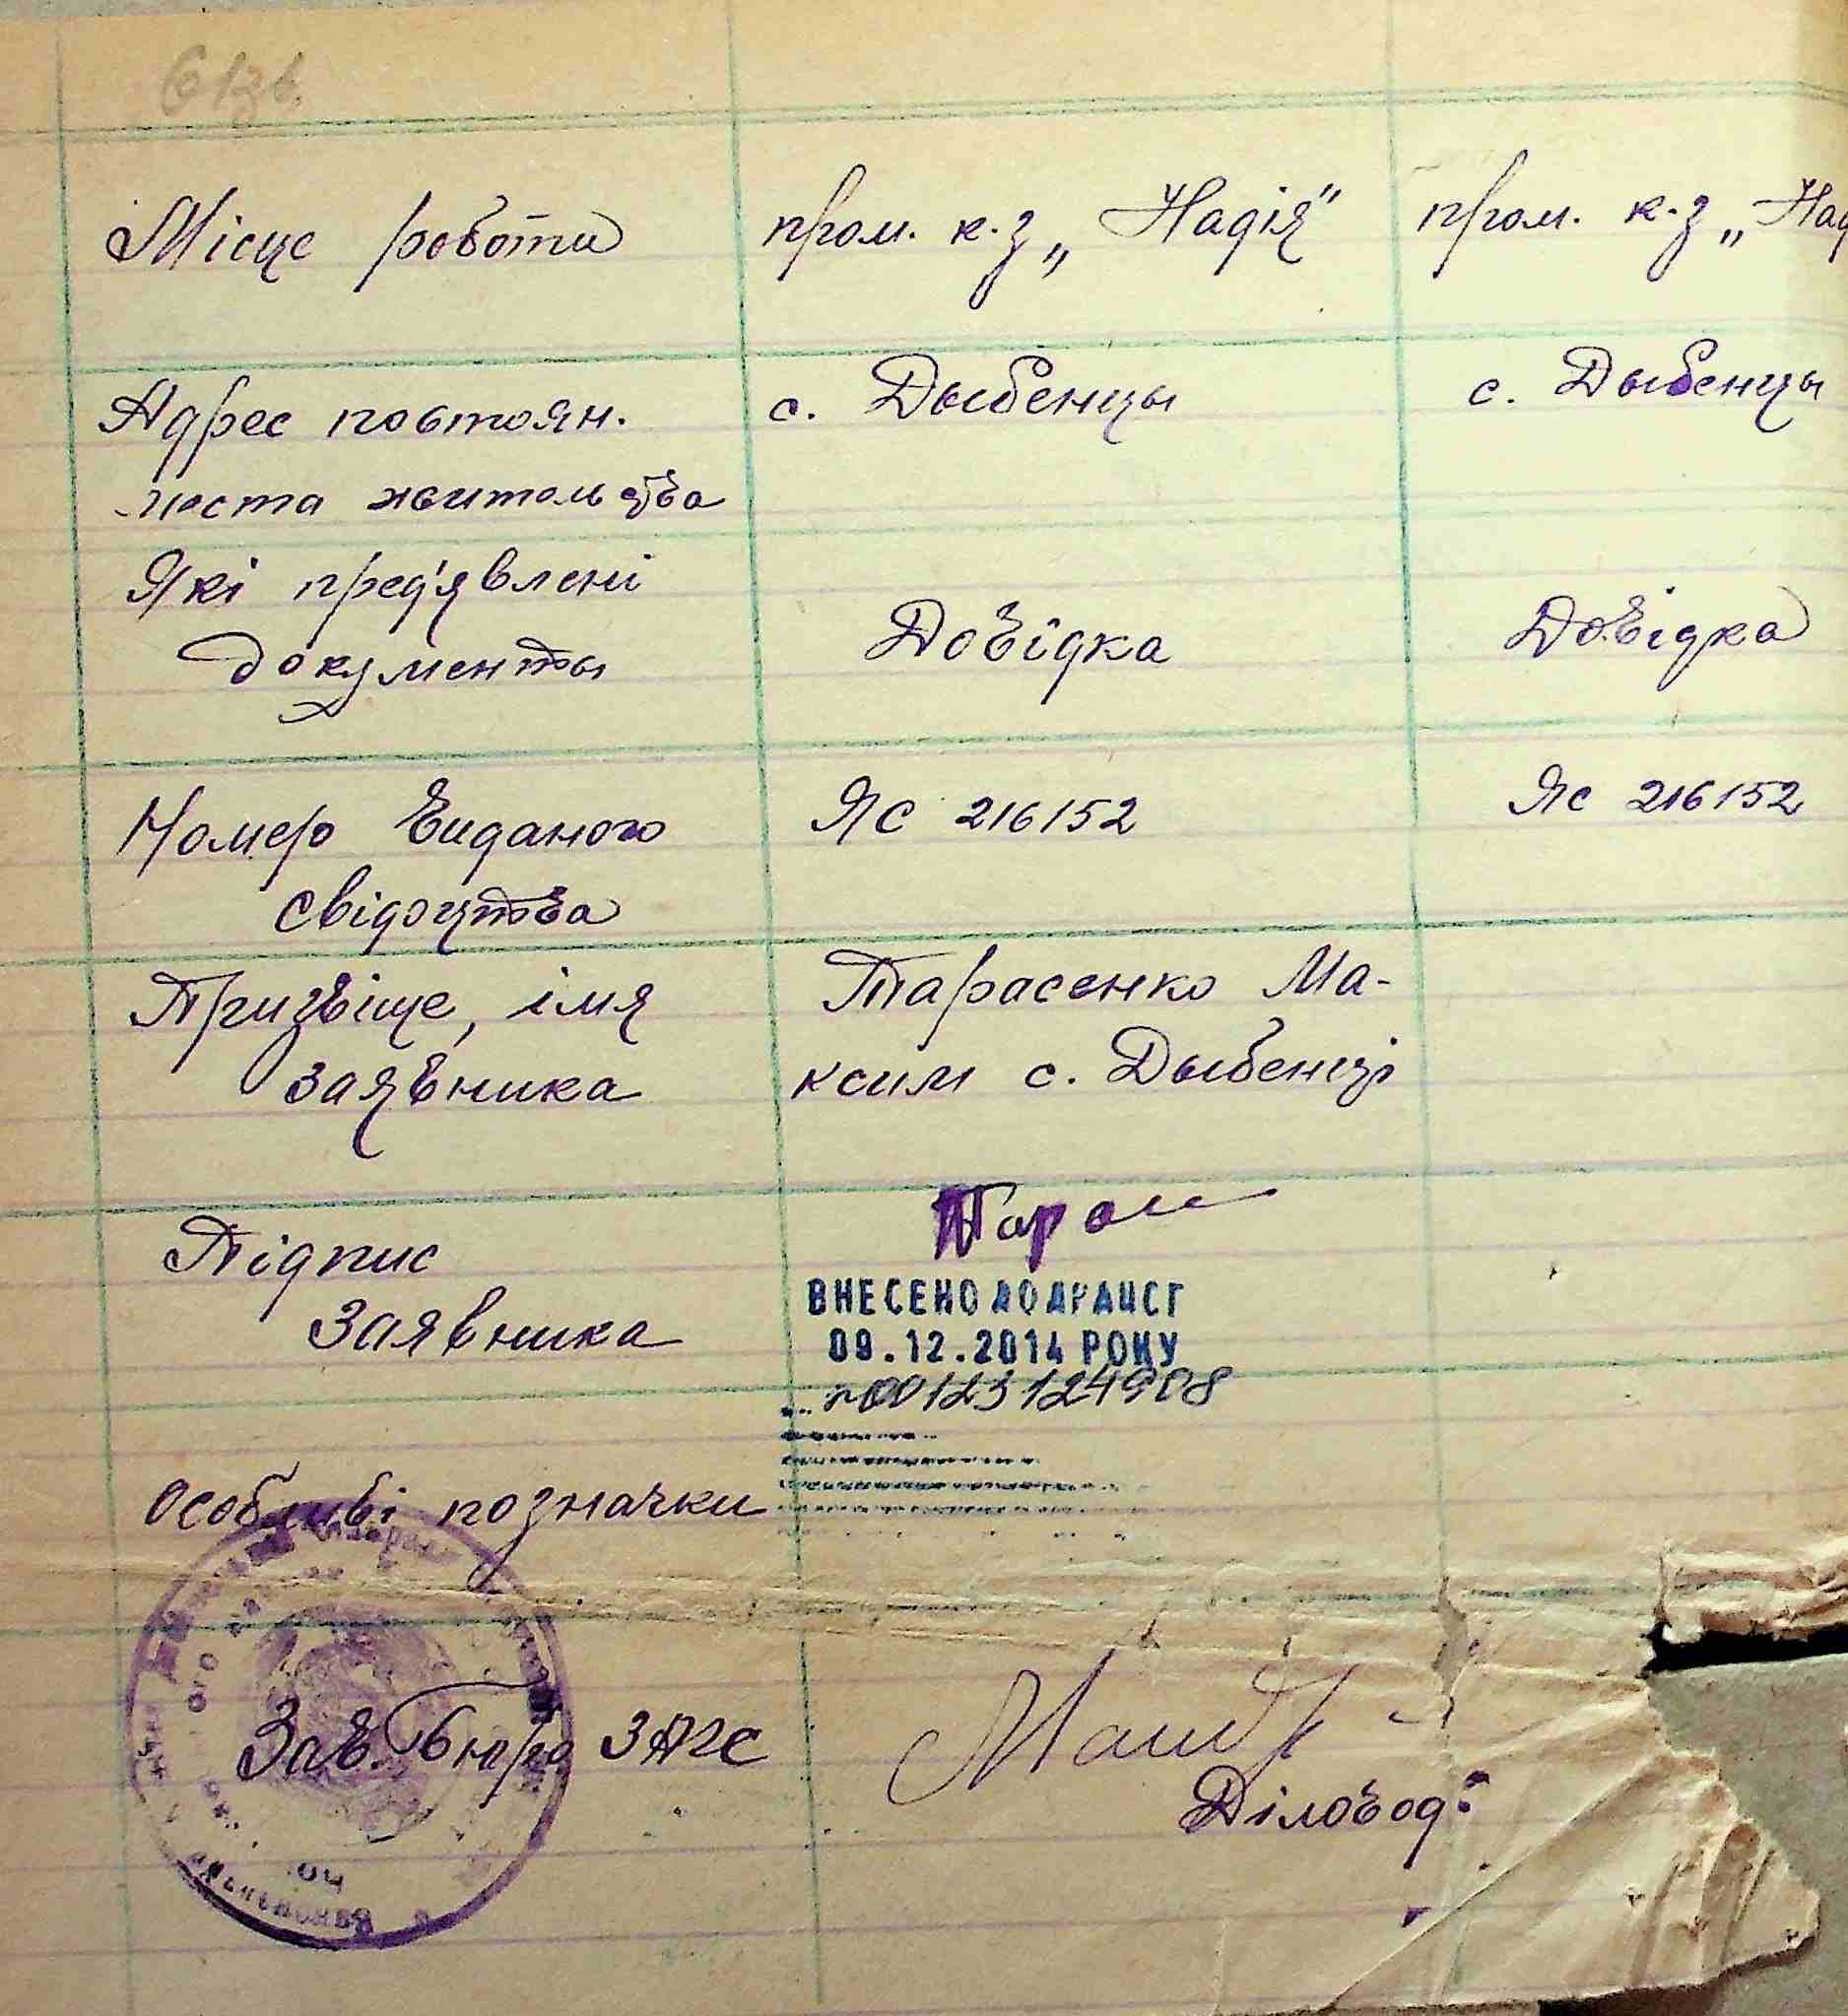 61зв.
Місце роботи
пром. к.з „Надія"
пром. к.з „Над
Адрес постоян.
места жительства
с. Дыбенцы
с. Дыбенцы
Які пред'явлені
документы
Довідка
Довідка
Номер виданого
свідоцтва
ЯС 216152
ЯС 216152
Призвіще, імя
заявника
Тарасенко Ма-
ксим с. Дыбенці
Підпис
Заявника
Тарас
ВНЕСЕНО ДО ДРАЦСГ
09.12.2014 РОКУ
00123124908
Особливі позначки
Зав. Бюро ЗАГС
Діловод: